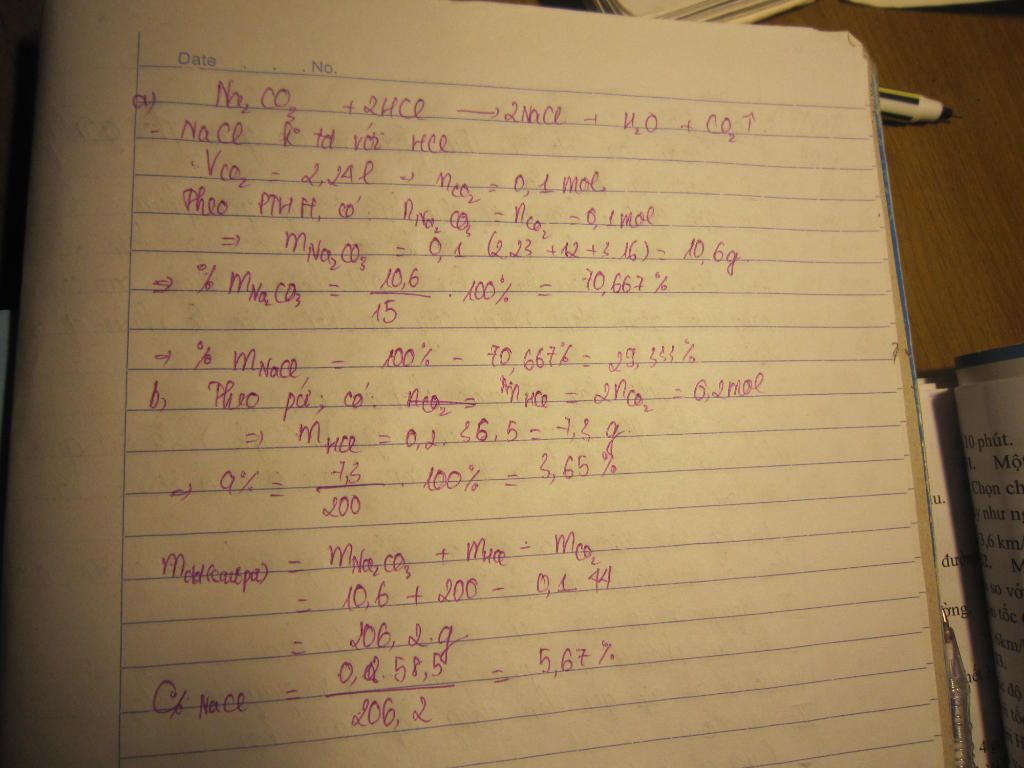 Date . . . No.
a) Na₂CO₃ + 2HCl → 2NaCl + H₂O + CO₂↑
- NaCl k° td với HCl
V_CO₂ = 2,24l → n_CO₂ = 0,1 mol
Theo PTHH, có: n_Na₂CO₃ = n_CO₂ = 0,1 mol
⇒ m_Na₂CO₃ = 0,1 (2.23 + 12 + 3.16) = 10,6g
⇒ % m_Na₂CO₃ = 10,6/15 . 100% = 70,667%
→ % m_NaCl = 100% - 70,667% = 29,333%
b, Theo pứ, có: n_CO₂ = n_HCl = 2n_CO₂ = 0,2mol
⇒ m_HCl = 0,2. 36,5 = 7,3 g
⇒ a% = 7,3/200 . 100% = 3,65%
m_dd(sau pứ) = m_Na₂CO₃ + m_HCl - m_CO₂
= 10,6 + 200 - 0,1.44
= 206,2.g
C% NaCl = 0,2.58,5/206,2 = 5,67%
10 phút.
1. Một
Chọn ch
y như ng
3,6 km/
2. M
so với
tốc
6km/
3.
độ
tốc
4
u.
đườ
ờng